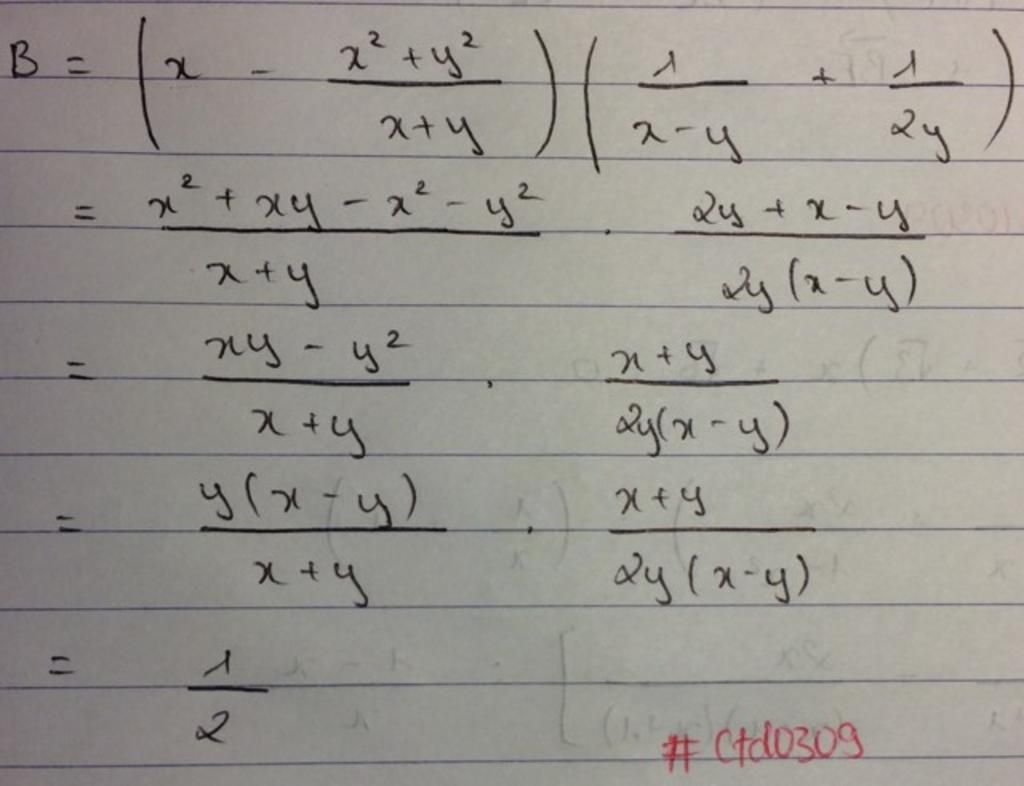 B = ( x - \frac{x^2 + y^2}{x + y} ) ( \frac{1}{x - y} + \frac{1}{2y} )
= \frac{x^2 + xy - x^2 - y^2}{x + y} . \frac{2y + x - y}{2y(x - y)}
= \frac{xy - y^2}{x + y} . \frac{x + y}{2y(x - y)}
= \frac{y(x - y)}{x + y} . \frac{x + y}{2y(x - y)}
= \frac{1}{2}
# Ctd0309